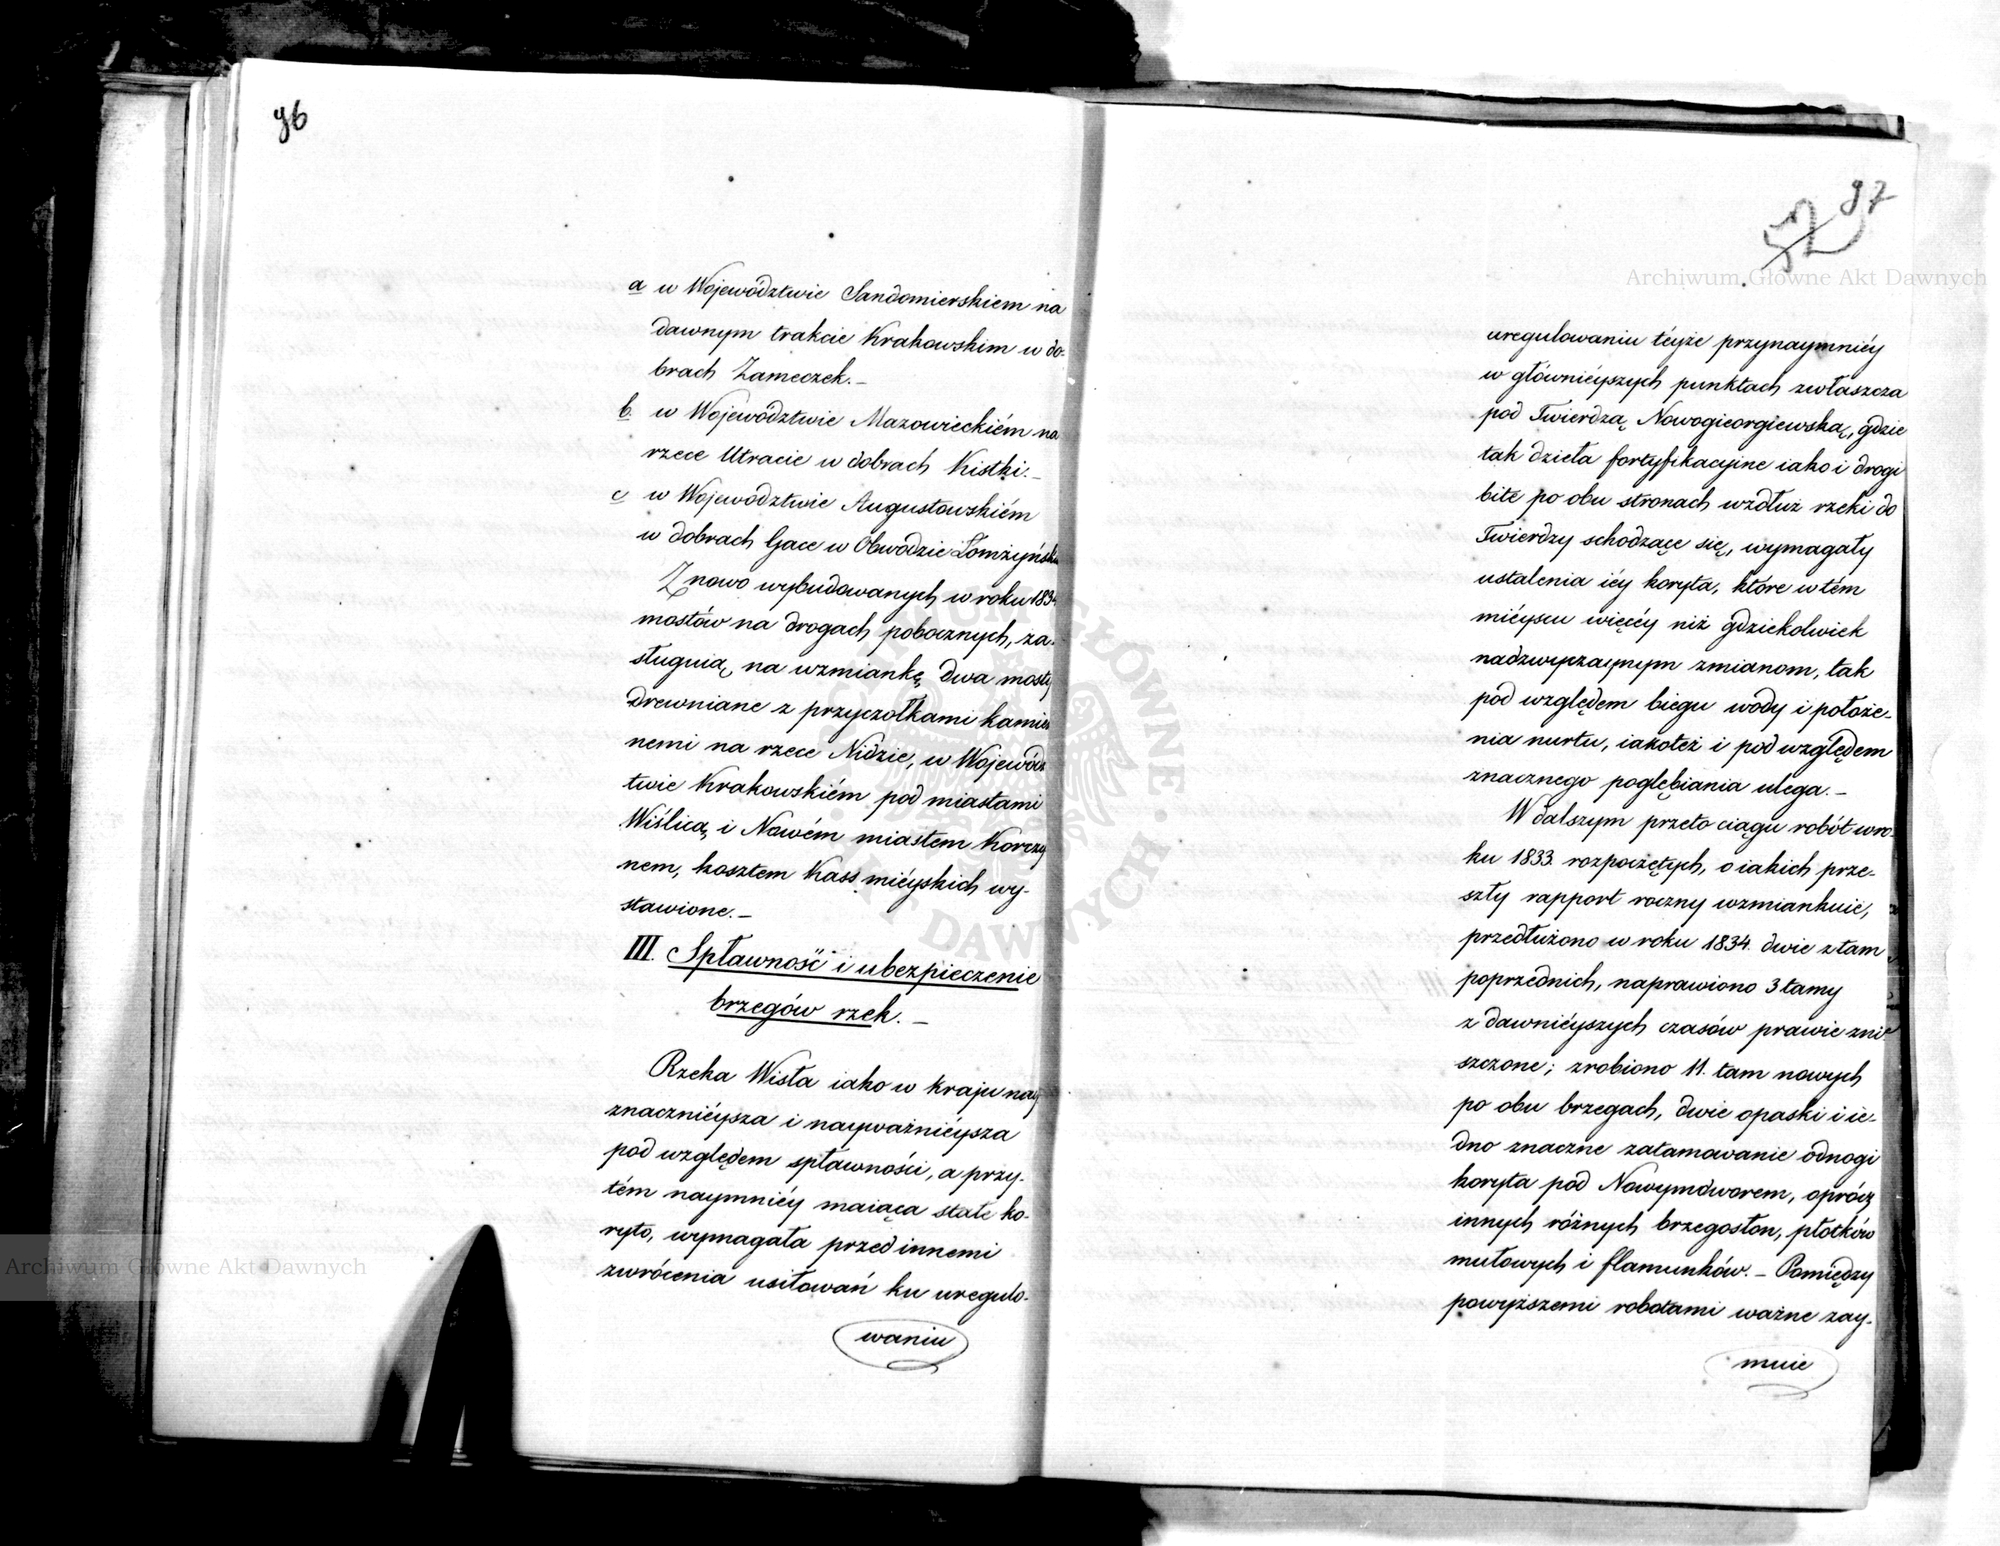 96
a w Województwie Sandomierskiem na
dawnym trakcie Krakowskim w do-
brach Zameczek.–
b. w Województwie Mazowieckiém na
rzece Utracie w dobrach Kistki.–
c w Województwie Augustowskiém
w dobrach Gace w Obwodzie Łomżyńsk
Z nowo wybudowanych w roku 1834
mostów na drogach pobocznych, za-
sługuią na wzmiankę dwa mosty
drewniane z przyczółkami kamien
nemi na rzece Nidzie, w Wojewódz
twie Krakowskiém pod miastami
Wiślicą i Nowém miastem Korczy
nem, kosztem Kass mieyskich wy-
stawione.–
III. Spławność i ubezpieczenie
brzegów rzek.–
Rzeka Wisła iako w kraju nay
znacznieysza i nayważnieysza
pod względem spławności, a przy-
tém naymniéy maiąca stałe ko-
ryto, wymagała przed innemi
zwrócenia usiłowań ku uregulo-
waniu
97
Archiwum Główne Akt Dawnych
uregulowaniu téyże przynaymniéy
w główniéyszych punktach zwłaszcza
pod Twierdzą Nowogieorgiewską, gdzie
tak dzieła fortyfikacyine iako i drogi
bite po obu stronach wzdłuż rzeki do
Twierdzy schodzące się, wymagały
ustalenia iéy koryta, które w tém
miéyscu więcéy niż gdziekolwiek
nadzwyczaynym zmianom, tak
pod względem biegu wody i położe-
nia nurtu, iakoteż i pod względem
znacznego pogłębiania ulega.–
W dalszym przeto ciągu robót w ro-
ku 1833. rozpoczętych, o iakich prze-
szły rapport roczny wzmiankuie,
przedłużono w roku 1834. dwie z tam
poprzednich, naprawiono 3 tamy
z dawniéyszych czasów prawie zni-
szczone; zrobiono 11. tam nowych
po obu brzegach, dwie opaski i ie-
dno znaczne zatamowanie odnogi
koryta pod Nowymdworem, oprócz
innych różnych brzegosłon, płotków
mułowych i flamunków.– Pomiędzy
powyższemi robotami ważne zay-
muie
Archiwum Główne Akt Dawnych